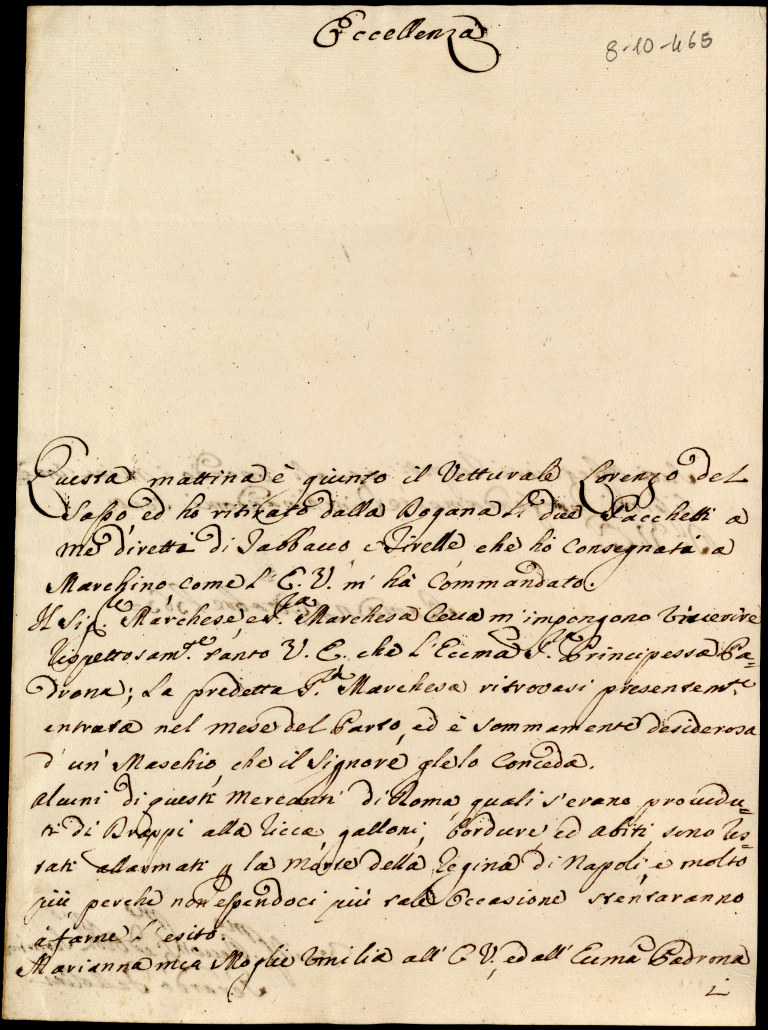 Eccellenza
8-10-465
Questa mattina è giunto il Vetturale Lorenzo del
Sasso ed ho ritirato dalla Dogana li due Pacchetti a
me diretti di Tabbacco e Girelle che ho consegnati a
Marchino come l'E. V. m' ha commandato.
Il Sig.re Marchese e S.ra Marchesa Ceva m'impongono riverire
rispettosam.te tanto V. E. che l'Eccma S.ra Principessa Pa=
drona; la predetta S.ra Marchesa ritrovasi presentem.te
entrata nel mese del Parto, ed è sommamente desiderosa
d' un' Maschio che il Signore glelo conceda.
Alcuni di questi Mercanti di Roma quali s'erano proviedu=
ti di Drappi alla ricca galloni, bordure, ed Abiti sono res=
tati allarmati p la Morte della Regina di Napoli, e molto
più perche non essendoci più tale Occasione stentaranno
a farne l'esito.
Marianna mia Moglie Umilia all' E V. ed all' Eccma Padrona
i